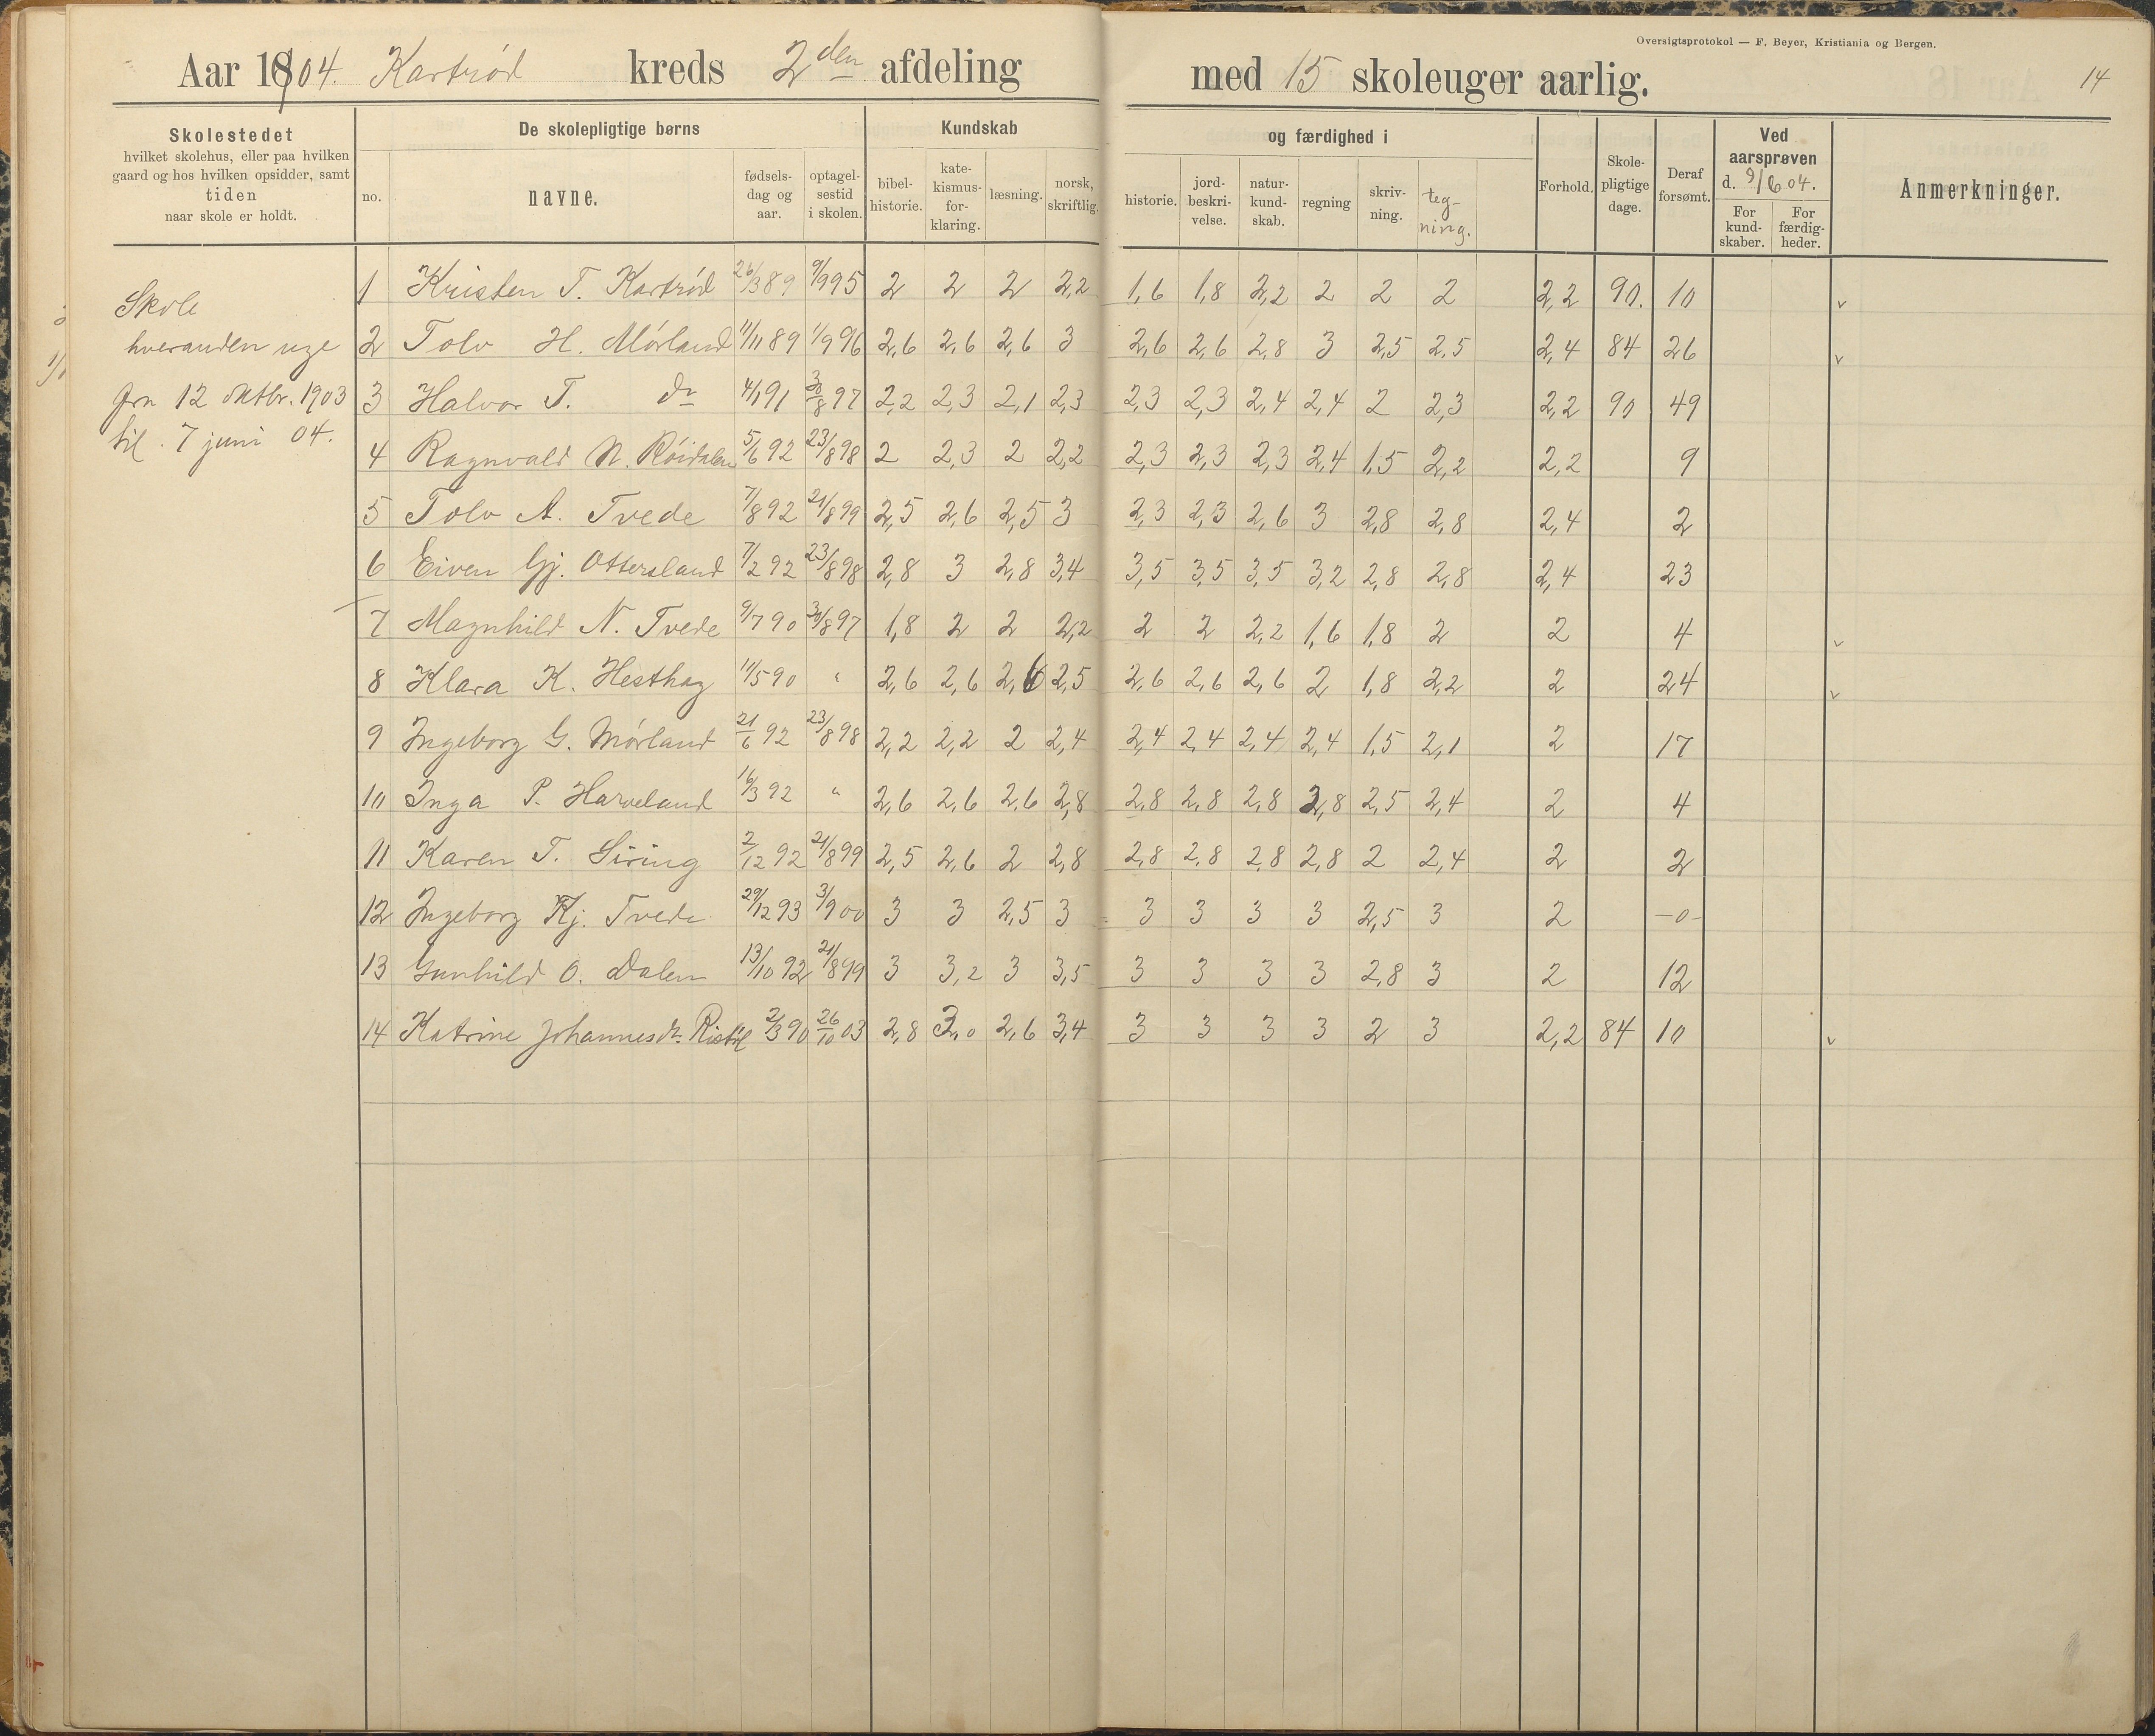 Oversigtsprotokol — F. Beyer, Kristiania og Bergen.
Aar 1804. Kartrød kreds 2den afdeling med 15 skoleuger aarlig. 14
Skolestedet hvilket skolehus, eller paa hvilken gaard og hos hvilken opsidder, samt tiden naar skole er holdt.
De skolepligtige børns
no. navne. fødsels-dag og aar. optagel-sestid i skolen.
Kundskab og færdighed i
bibel-historie. kate-kismus-for-klaring. læsning. norsk, skriftlig. historie. jord-beskri-velse. natur-kund-skab. regning skriv-ning. teg-ning.
Forhold. Skole-pligtige dage. Deraf forsømt.
Ved aarsprøven d. 9/6 04.
For kund-skaber. For færdig-heder.
Anmerkninger.
Skole
hveranden uge
fra 12 oktbr. 1903
til 7 juni 04.
1 Kristen T. Kartrød 26/3 89 9/9 95 2 2 2 2,2 1,6 1,8 2,2 2 2 2 2,2 90. 10 v
2 Tolv H. Mørland 11/11 89 1/9 96 2,6 2,6 2,6 3 2,6 2,6 2,8 3 2,5 2,5 2,4 84 26 v
3 Halvor T. do 4/1 91 30/8 97 2,2 2,3 2,1 2,3 2,3 2,3 2,4 2,4 2 2,3 2,2 90 49
4 Ragnvald N. Røidalen 5/6 92 23/8 98 2 2,3 2 2,2 2,3 2,3 2,3 2,4 1,5 2,2 2,2 9
5 Tolv A. Tvede 7/8 92 21/8 99 2,5 2,6 2,5 3 2,3 2,3 2,6 3 2,8 2,8 2,4 2
6 Eiven Gj. Ottersland 7/2 92 23/8 98 2,8 3 2,8 3,4 3,5 3,5 3,5 3,2 2,8 2,8 2,4 23
7 Magnhild N. Tvede 9/7 90 30/8 97 1,8 2 2 2,2 2 2 2,2 1,6 1,8 2 2 4 v
8 Klara K. Hesthag 11/5 90 " 2,6 2,6 2,6 2,5 2,6 2,6 2,6 2 1,8 2,2 2 24 v
9 Ingeborg G. Mørland 21/6 92 23/8 98 2,2 2,2 2 2,4 2,4 2,4 2,4 2,4 1,5 2,1 2 17
10 Inga P. Harveland 16/3 92 " 2,6 2,6 2,6 2,8 2,8 2,8 2,8 2,8 2,5 2,4 2 4
11 Karen T. Siring 2/12 92 21/8 99 2,5 2,6 2 2,8 2,8 2,8 2,8 2,8 2 2,4 2 2
12 Ingeborg Kj. Tvede 29/12 93 3/9 00 3 3 2,5 3 3 3 3 3 2,5 3 2 -0-
13 Gunhild O. Dalen 13/10 92 21/8 99 3 3,2 3 3,5 3 3 3 3 2,8 3 2 12
14 Katrine Johannesdr. Ristøl 2/3 90 26/10 03 2,8 3,0 2,6 3,4 3 3 3 3 2 3 2,2 84 10 v